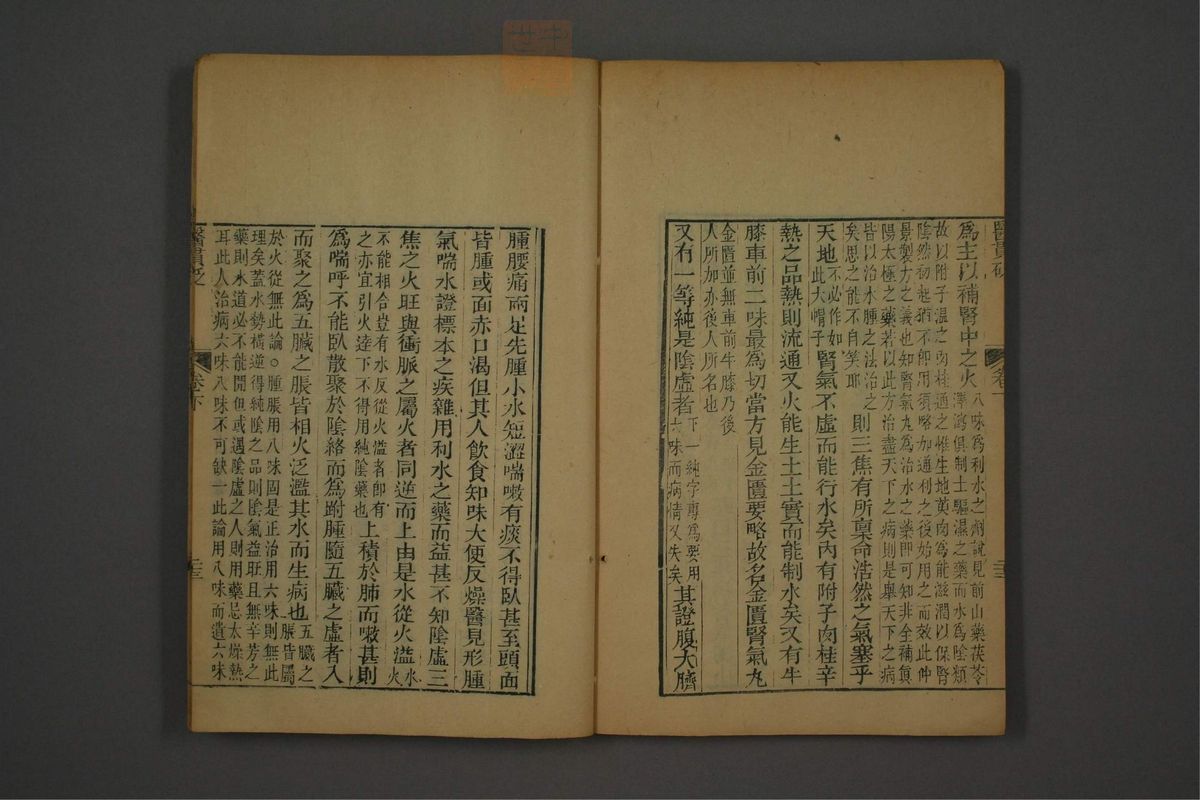 醫貫砭
卷下
為主以補腎中之火八味為利水之劑說見前山藥茯苓
澤瀉俱制土驅濕之藥而水為陰類
故以附子溫之肉桂通之惟生地萸肉為能滋潤以保腎
陰然初起猶不卽用須略加通利之後始用之而效此仲
景製方之義也知腎氣丸為治水之藥即可知非全補真
陽太極之藥若以此方治盡天下之病則是舉天下之病
皆以治水腫之法治之
矣思之能不自笑耶則三焦有所稟命浩然之氣塞乎
天地不必作如
此大帽子腎氣不虛而能行水矣內有附子肉桂辛
熱之品熱則流通又火能生土土實而能制水矣又有牛
膝車前二味最為切當方見金匱要略故名金匱腎氣丸
金匱並無車前牛膝乃後
人所加亦後人所名也
又有一等純是陰虛者下一純字專為要用
六味而病情又失矣其證腹大臍
腫腰痛兩足先腫小水短澀喘嗽有痰不得臥甚至頭面
皆腫或面赤口渴但其人飲食知味大便反燥醫見形腫
氣喘水證標本之疾雜用利水之藥而益甚不知陰虛三
焦之火旺與衝脈之屬火者同逆而上由是水從火溢水火
不能相合豈有水反從火溢者卽有
之亦宜引火達下不得用純陰藥也上積於肺而嗽甚則
為喘呼不能臥散聚於陰絡而為跗腫隨五臟之虛者入
而聚之為五臟之脹皆相火泛濫其水而生病也五臟之
脹皆屬
於火從無此論○腫脹用八味固是正治用六味則無此
理矣蓋水勢橫逆得純陰之品則陰氣益旺且無辛芳之
藥則水道必不能開但或遇陰虛之人則用藥忌太燥熱
耳此人治病六味八味不可缺一此論用八味而遺六味
醫貫砭
卷下
二三